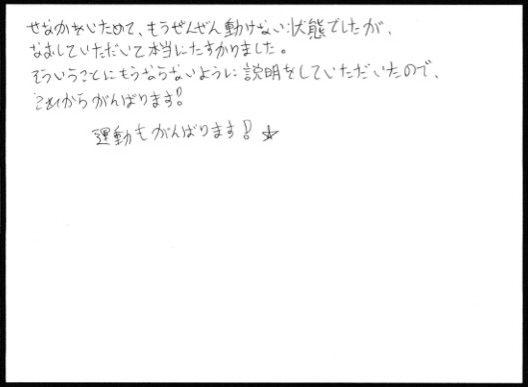 せなかをいためて、もうぜんぜん動けない状態でしたが、
なおしていただいて本当にたすかりました。
そういうことにもうならないように説明をしていただいたので、
これからがんばります!
運動もがんばります!☆